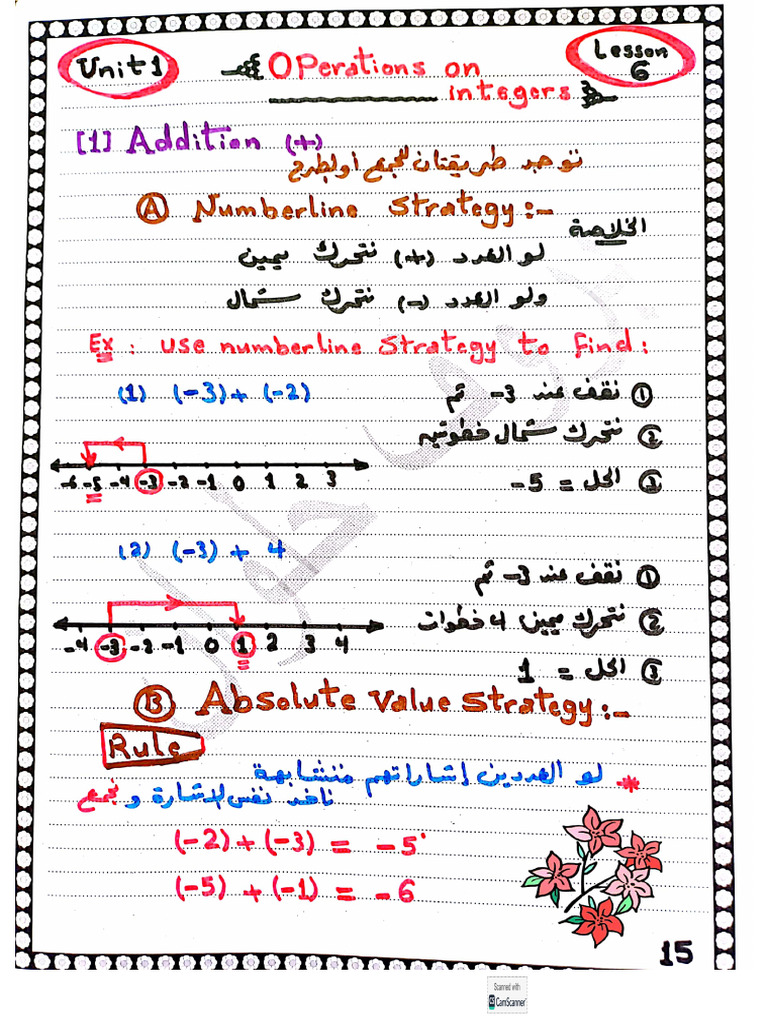 Unit 1
Operations on
integers
Lesson
6
[1] Addition (+)
توجد طريقتان للجمع أو الطرح
Ⓐ Numberline Strategy:-
الخلاصة
لو العدد (+) نتحرك يمين
ولو العدد (-) نتحرك شمال
Ex : Use numberline Strategy to find :
(1) (-3) + (-2)
① نقف عند 3- ثم
② نتحرك شمال خطوتين
③ الحل = 5-
-6 -5 -4 -3 -2 -1 0 1 2 3
(2) (-3) + 4
① نقف عند 3- ثم
② نتحرك يمين 4 خطوات
③ الحل = 1
-4 -3 -2 -1 0 1 2 3 4
Ⓑ Absolute Value Strategy:-
Rule
* لو العددين إشاراتهم متشابهة
ناخد نفس الإشارة و نجمع
(-2) + (-3) = -5
(-5) + (-1) = -6
15
Scanned with
CS CamScanner